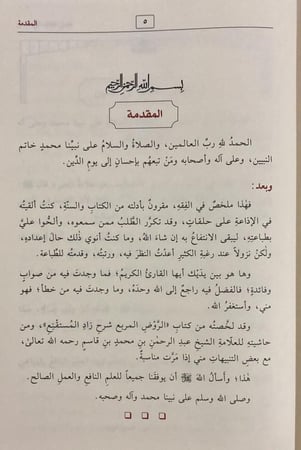 المقدمة
٥
بسم الله الرحمن الرحيم
المقدمة
الحمدُ للهِ ربِّ العالمين، والصلاةُ والسلامُ على نبيِّنا محمدٍ خاتم
النبيين، وعلى آله وأصحابه ومَنْ تبعهُم بإحسانٍ إلى يومِ الدِّين.
وبعد:
فهٰذا ملخصٌ في الفِقهِ، مقرونٌ بأدلته من الكتابِ والسنَّةِ، كنتُ ألقيتُه
في الإذاعةِ على حلقاتٍ، وقد تكرَّر الطَّلبُ ممن سمعوه، وألحُّوا عليَّ
بطباعتِهِ، ليبقى الانتفاعُ به إن شاءَ اللهُ، وما كنتُ أنوي ذلك حالَ إعدادِهِ،
ولكنْ نزولاً عند رغبةِ الكثيرِ أعدْتُ النظرَ فيه، ورتبتُه، وقدمتُه للطباعة.
وها هو بين يدَيْك أيها القارئُ الكريمُ؛ فما وجدتَ فيه من صوابٍ
وفائدةٍ؛ فالفضلُ فيه راجعٌ إلى الله وحدَهُ، وما وجدتَ فيه من خطأ؛ فهو
مني، وأستغفرُ الله.
وقد لخَّصتُه من كتابِ «الرَّوْضِ المربع شرحِ زادِ المُستَقْنِعِ»، ومن
حاشيتِه للعلامةِ الشيخِ عبدِالرحمٰنِ بنِ محمدِ بنِ قاسمٍ رحمه الله تعالىٰ،
مع بعضِ التنبيهاتِ مني إذا مَرَّت مناسبةٌ.
هٰذا؛ وأسألُ اللهَ ﷻ أن يوفقَنا جميعاً للعلمِ النافعِ والعملِ الصالح.
وصلى الله وسلم على نبينا محمد وآله وصحبه.